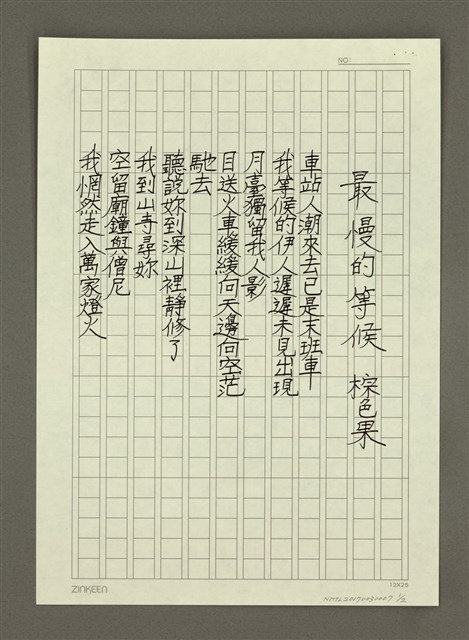 NO:
最慢的等候 棕色果
車站人潮來去已是末班車
我等候的伊人遲遲未見出現
月臺獨留我人影
目送火車緩緩向天邊向空茫
馳去
聽說妳到深山裡靜修了
我到山寺尋妳
空留廟鐘與僧尼
我惘然走入萬家燈火
ZINKEEN
12X25
NMTL20170031007 1/2